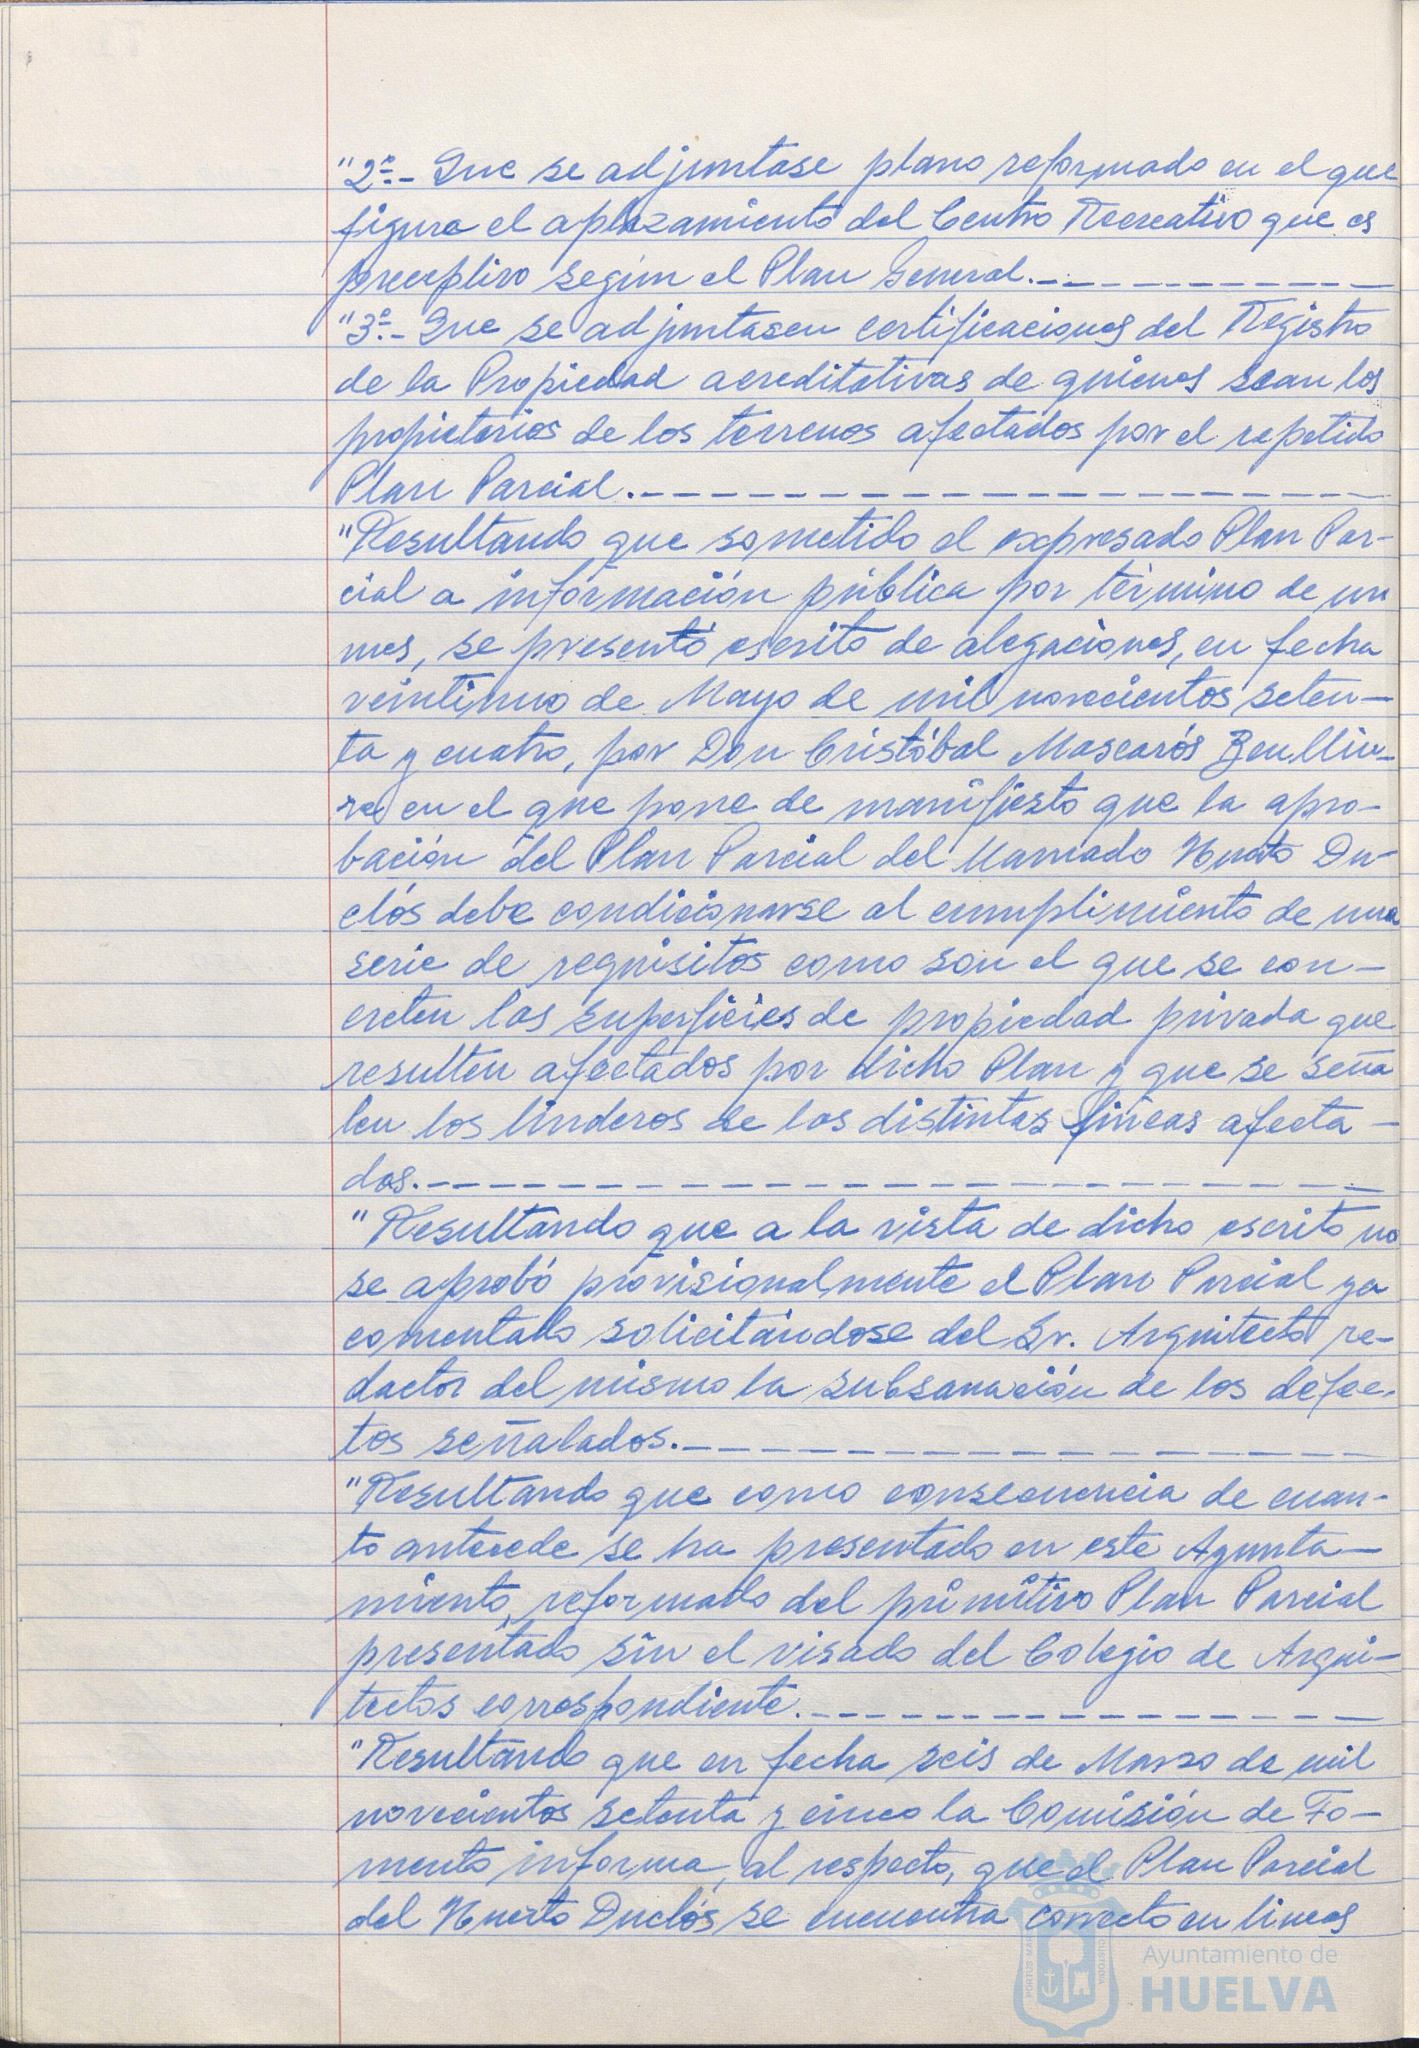 "2º.- Que se adjuntase plano reformado en el que
figure el aplazamiento del Centro Recreativo que es
preceptivo según el Plan General.-
"3º.- Que se adjuntasen certificaciones del Registro
de la Propiedad acreditativas de quienes sean los
propietarios de los terrenos afectados por el repetido
Plan Parcial.-
"Resultando que sometido el expresado Plan Par-
cial a información pública por término de un
mes, se presentó escrito de alegaciones, en fecha
veintiuno de Mayo de mil novecientos seten-
ta y cuatro, por Don Cristóbal Mascarós Benlliu-
re, en el que pone de manifiesto que la apro-
bación del Plan Parcial del llamado Huerto Du-
clós debe condicionarse al cumplimiento de una
serie de requisitos como son el que se con-
creten las superficies de propiedad privada que
resulten afectados por dicho Plan y que se seña
len los linderos de las distintas fincas afecta-
das.-
"Resultando que a la vista de dicho escrito no
se aprobó provisionalmente el Plan Parcial ya
comentado solicitándose del Sr. Arquitecto re-
dactor del mismo la subsanación de los defec-
tos señalados.-
"Resultando que como consecuencia de cuan-
to antecede se ha presentado en este Ayunta-
miento, reformado del primitivo Plan Parcial
presentado sin el visado del Colegio de Arqui-
tectos correspondiente.-
"Resultando que en fecha seis de Marzo de mil
novecientos setenta y cinco la Comisión de Fo-
mento informa, al respecto, que el Plan Parcial
del Huerto Duclós se encuentra correcto en líneas
Ayuntamiento de
HUELVA